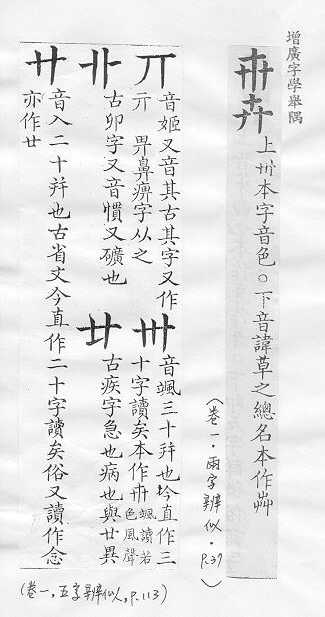 增廣字學舉隅
卉
上卅本字音色。下音諱草之總名本作艸
(卷一.兩字辨似.P.37)
丌
音姬又音其古其字又作
亓 畀鼻痹字从之
卅
音颯三十并也今直作三
十字讀矣本作 颯讀若
色風聲
丱
古卯字又音慣又礦也
廿
古疾字急也病也與廿異
卄
音入二十并也古省文今直作二十字讀矣俗又讀作念
亦作廿
(卷一,五字辨似,P.113)